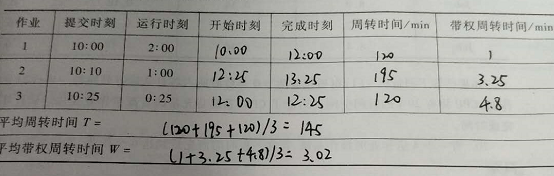 作业 提交时刻 运行时刻 开始时刻 完成时刻 周转时间/min 带权周转时间/min
1 10:00 2:00 10:00 12:00 120 1
2 10:10 1:00 12:25 13:25 195 3.25
3 10:25 0:25 12:00 12:25 120 4.8
平均周转时间 T= (120+195+120)/3=145
平均带权周转时间 W= (1+3.25+4.8)/3=3.02